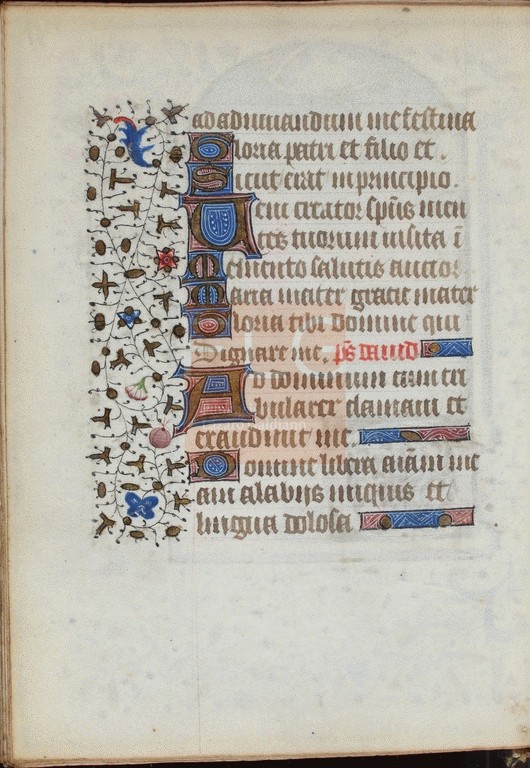 ad adiuuandum me festina
Gloria patri et filio et.
Sicut erat in principio.
Veni creator sp̃us men
tes tuorum uisita ĩ
Memento salutis auctor
Maria mater gratie mater
Gloria tibi domine qui
Dignare me. p̃s dauid
Ad dominum cum tri
bularer clamaui et
exaudiuit me
Domine libera aĩam me
am alabijs iniquis et
lingua dolosa